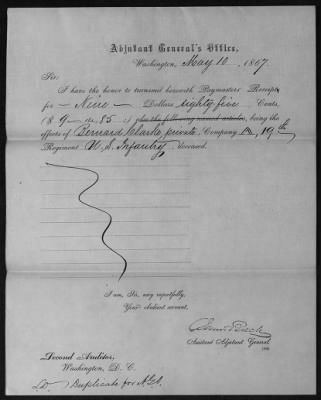 Adjutant General's Office,
Washington, May 10, 1867.
Sir:
I have the honor to transmit herewith Paymasters Receipt
for – Nine – Dollars eighty five Cents,
($ 9 – 85) & also the following named articles, being the
effects of Bernard Charle, private, Company A, 19th
Regiment U.S. Infantry, deceased.
I am, Sir, very respectfully,
Your obedient servant,
Assistant Adjutant General
Second Auditor,
Washington, D. C.
Duplicate for A.G.O.